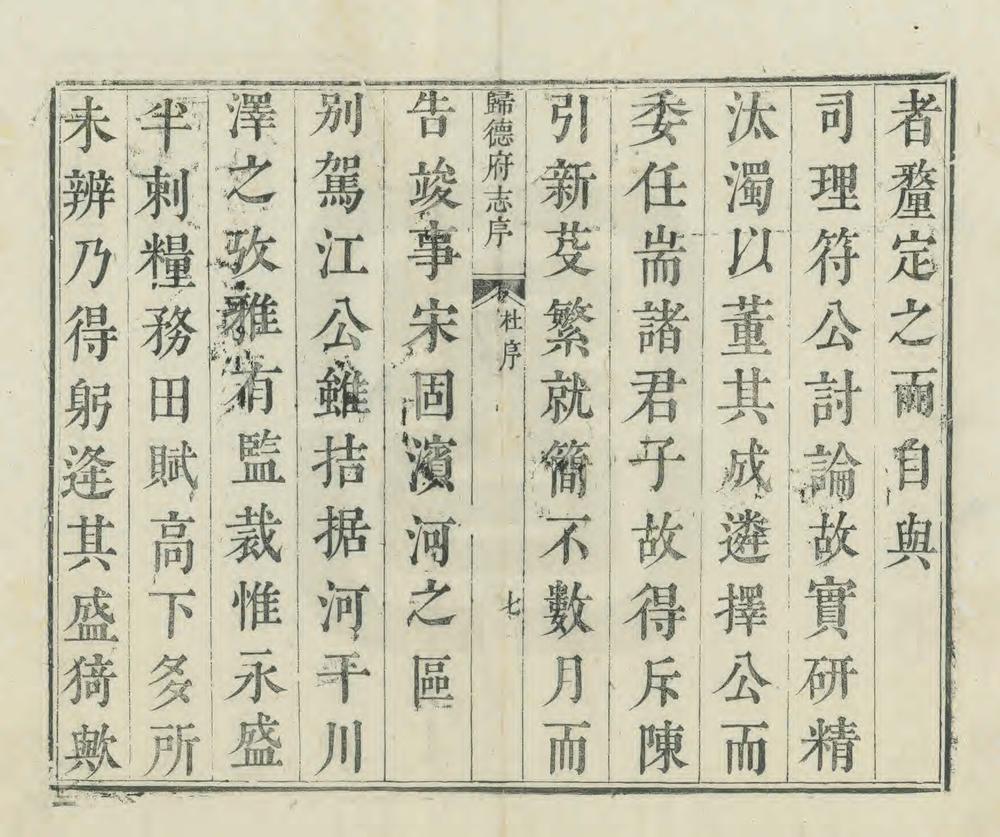 者釐定之而自與
司理符公討論故實研精
汰濁以董其成遴擇公而
委任耑諸君子故得斥陳
引新芟繁就簡不數月而
歸德府志序
杜序
七
告竣事宋固濱河之區
别駕江公雖拮据河干川
澤之攷雅有監裁惟永盛
半刺糧務田賦高下多所
未辨乃得躬逢其盛猗歟